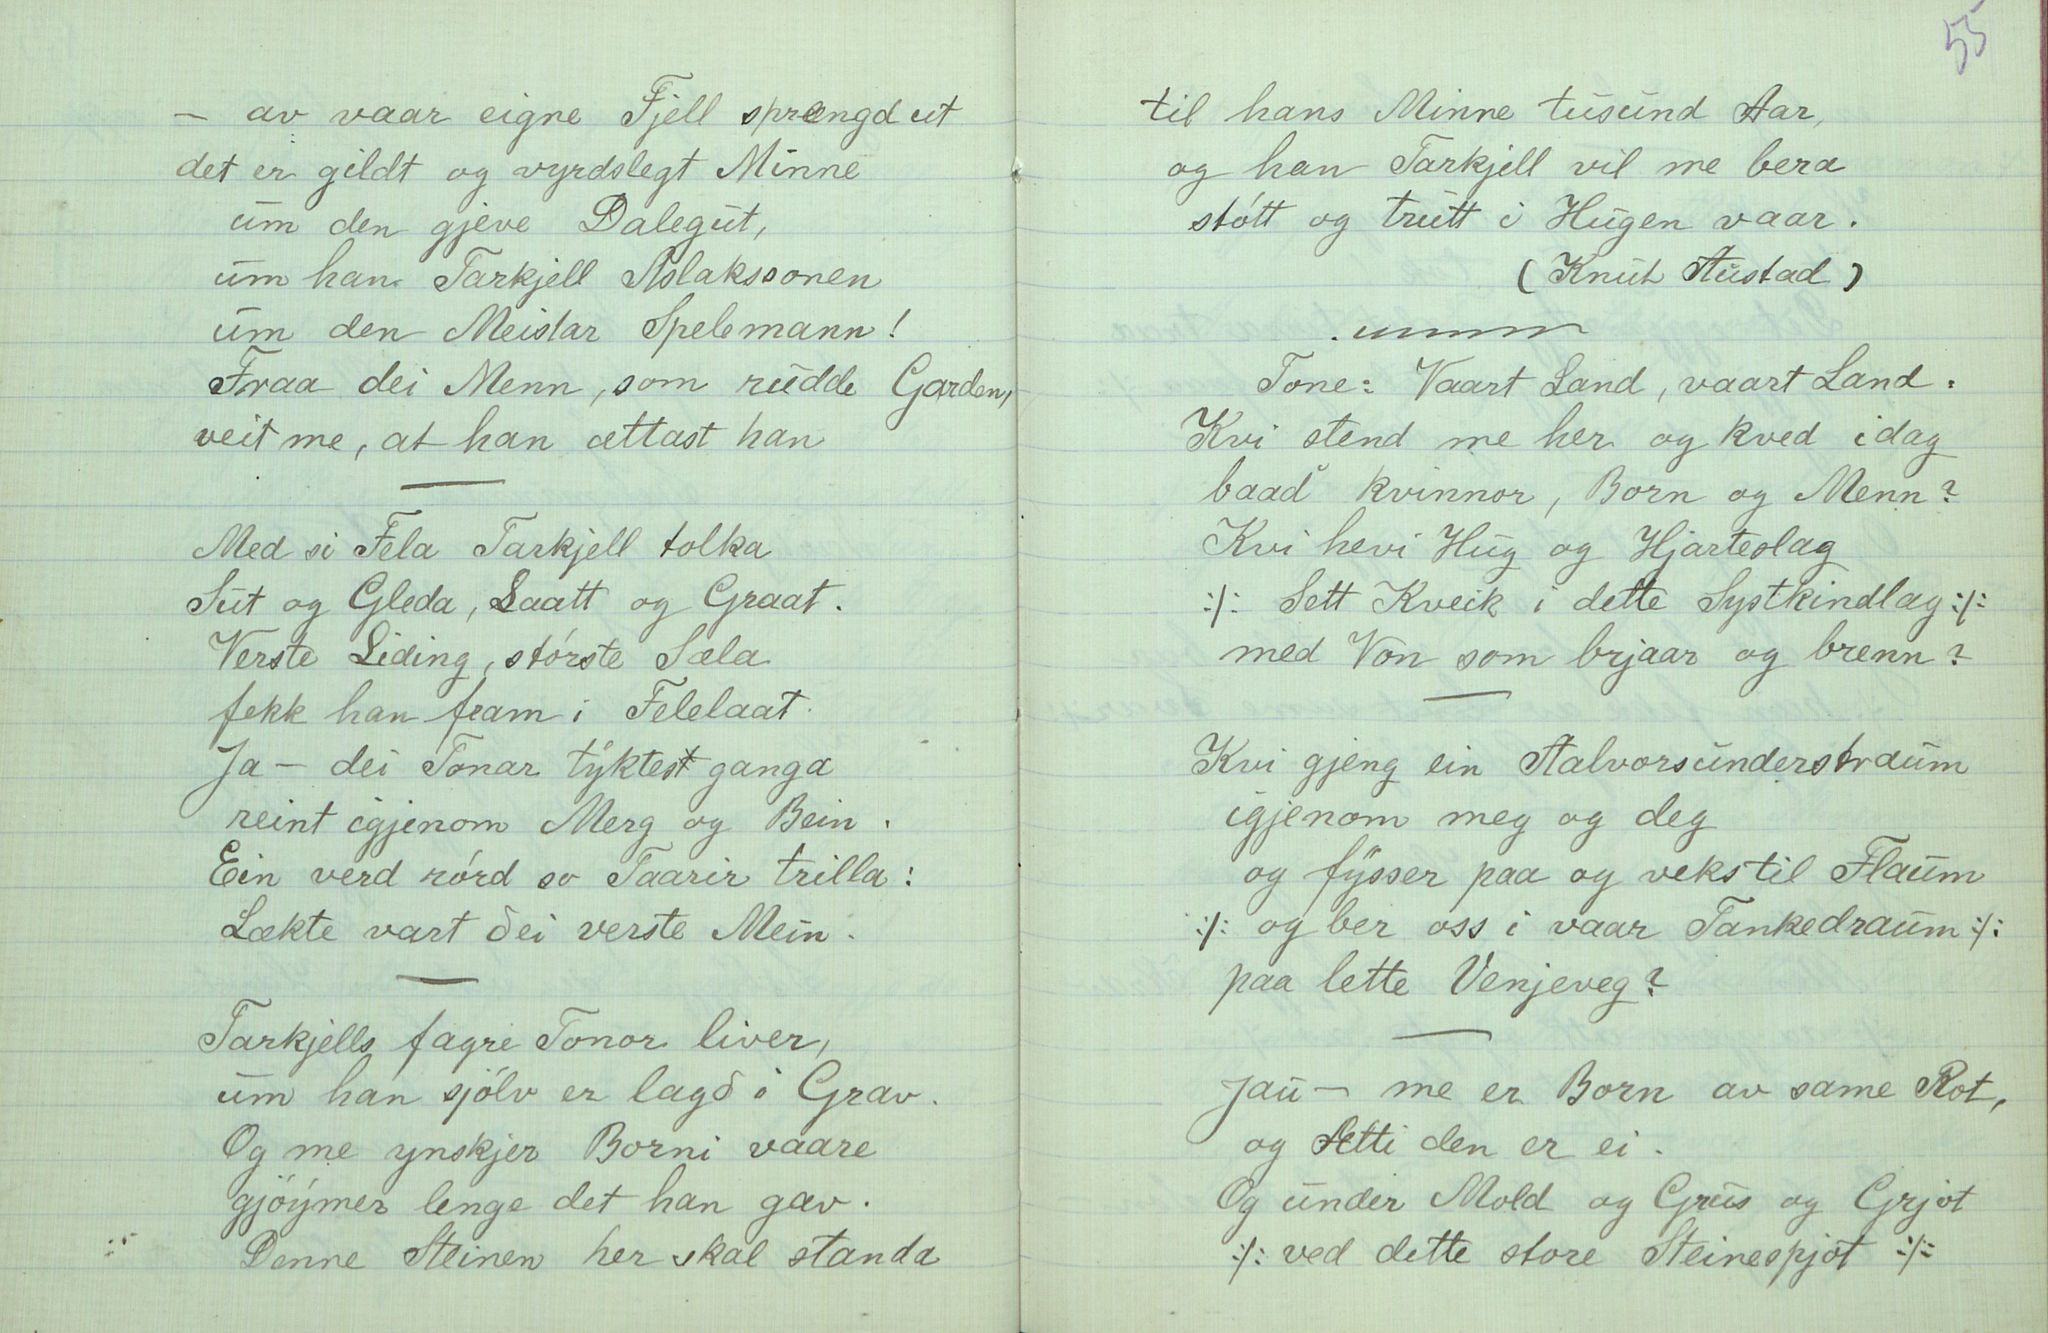 – av vaar eigne Fjell sprengd ut
det er gildt og vyrdslegt Minne
um den gjeve Dalegut,
um han Tarkjell Aslakssonen
um den Meistar Spelemann!
Fraa dei Menn, som rudde Garden,
veit me, at han ættast han
—
Med si Fela Tarkjell tolka
Sut og Gleda, Laatt og Graat.
Verste Liding, störste Sæla
fekk han fram i Felelaat.
Ja – dei Tonar tyktest ganga
reint igjenom Merg og Bein.
Ein verd rörd so Taarir trilla:
Lækte vart dei verste Mein.
—
Tarkjells fagre Tonor liver,
um han sjölv er lagd i Grav.
Og me ynskjer Borni vaare
gjöymer lenge det han gav.
Denne Steinen her skal standa
55
til hans Minne tusund Aar,
og han Tarkjell vil me bera
stött og trutt i Hugen vaar.
(Knut Austad)
Tone: Vaart Land, vaart Land.
Kvi stend me her og kved idag
baad' kvinnor, Born og Menn?
Kvi hevi Hug og Hjarteslag
:/: Sett Kveik i dette Systkindlag :/:
med Von som brjaar og brenn?
—
Kvi gjeng ein Aalvorsunderstraum
igjenom meg og deg
og fysser paa og veks til Flaum
:/: og ber oss i vaar Tankedraum :/:
paa lette Venjeveg?
—
Jau – me er Born av same Rot,
og Ætti den er ei.
Og under Mold og Grus og Grjot
:/: ved dette store Steinespjot :/: